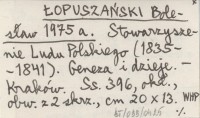 ŁOPUSZAŃSKI Bole-
sław 1975 a. Stowarzysze-
nie Ludu Polskiego (1835-
-1841). Geneza i dzieje. -
Kraków. Ss. 396, okł.,
obw. z 2 skrz., cm 20 x 13. WHP